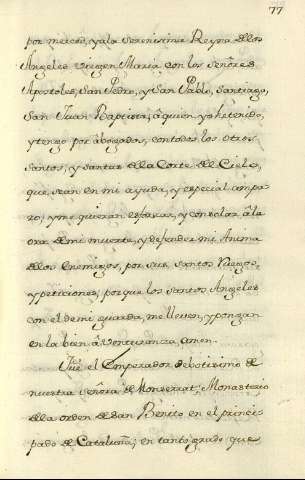 77
por merced, y a la Serenisima Reyna de los
Angeles virgen Maria con los señores
Apostoles, San Pedro, y San Pablo, Santiago,
San Juan Baptista, à quien yo he tenido,
y tengo por abogados, con todos los otros
santos, y santas de la Corte del Cielo,
que sean en mi ayuda, y especial ampa-
ro; y me quieran esforzar, y consolar à la
ora de mi muerte, y defender mi Anima
de los enemigos, por sus santos Ruegos,
y peticiones; porque los santos Angeles
con el de mi guarda, me lleven, y pongan
en la bien aventuranza, amen.
Fue el Emperador debotisimo de
nuestra señora de Monserrat, Monasterio
de la orden de San Benito en el princi-
pado de Cataluña; en tanto grado que